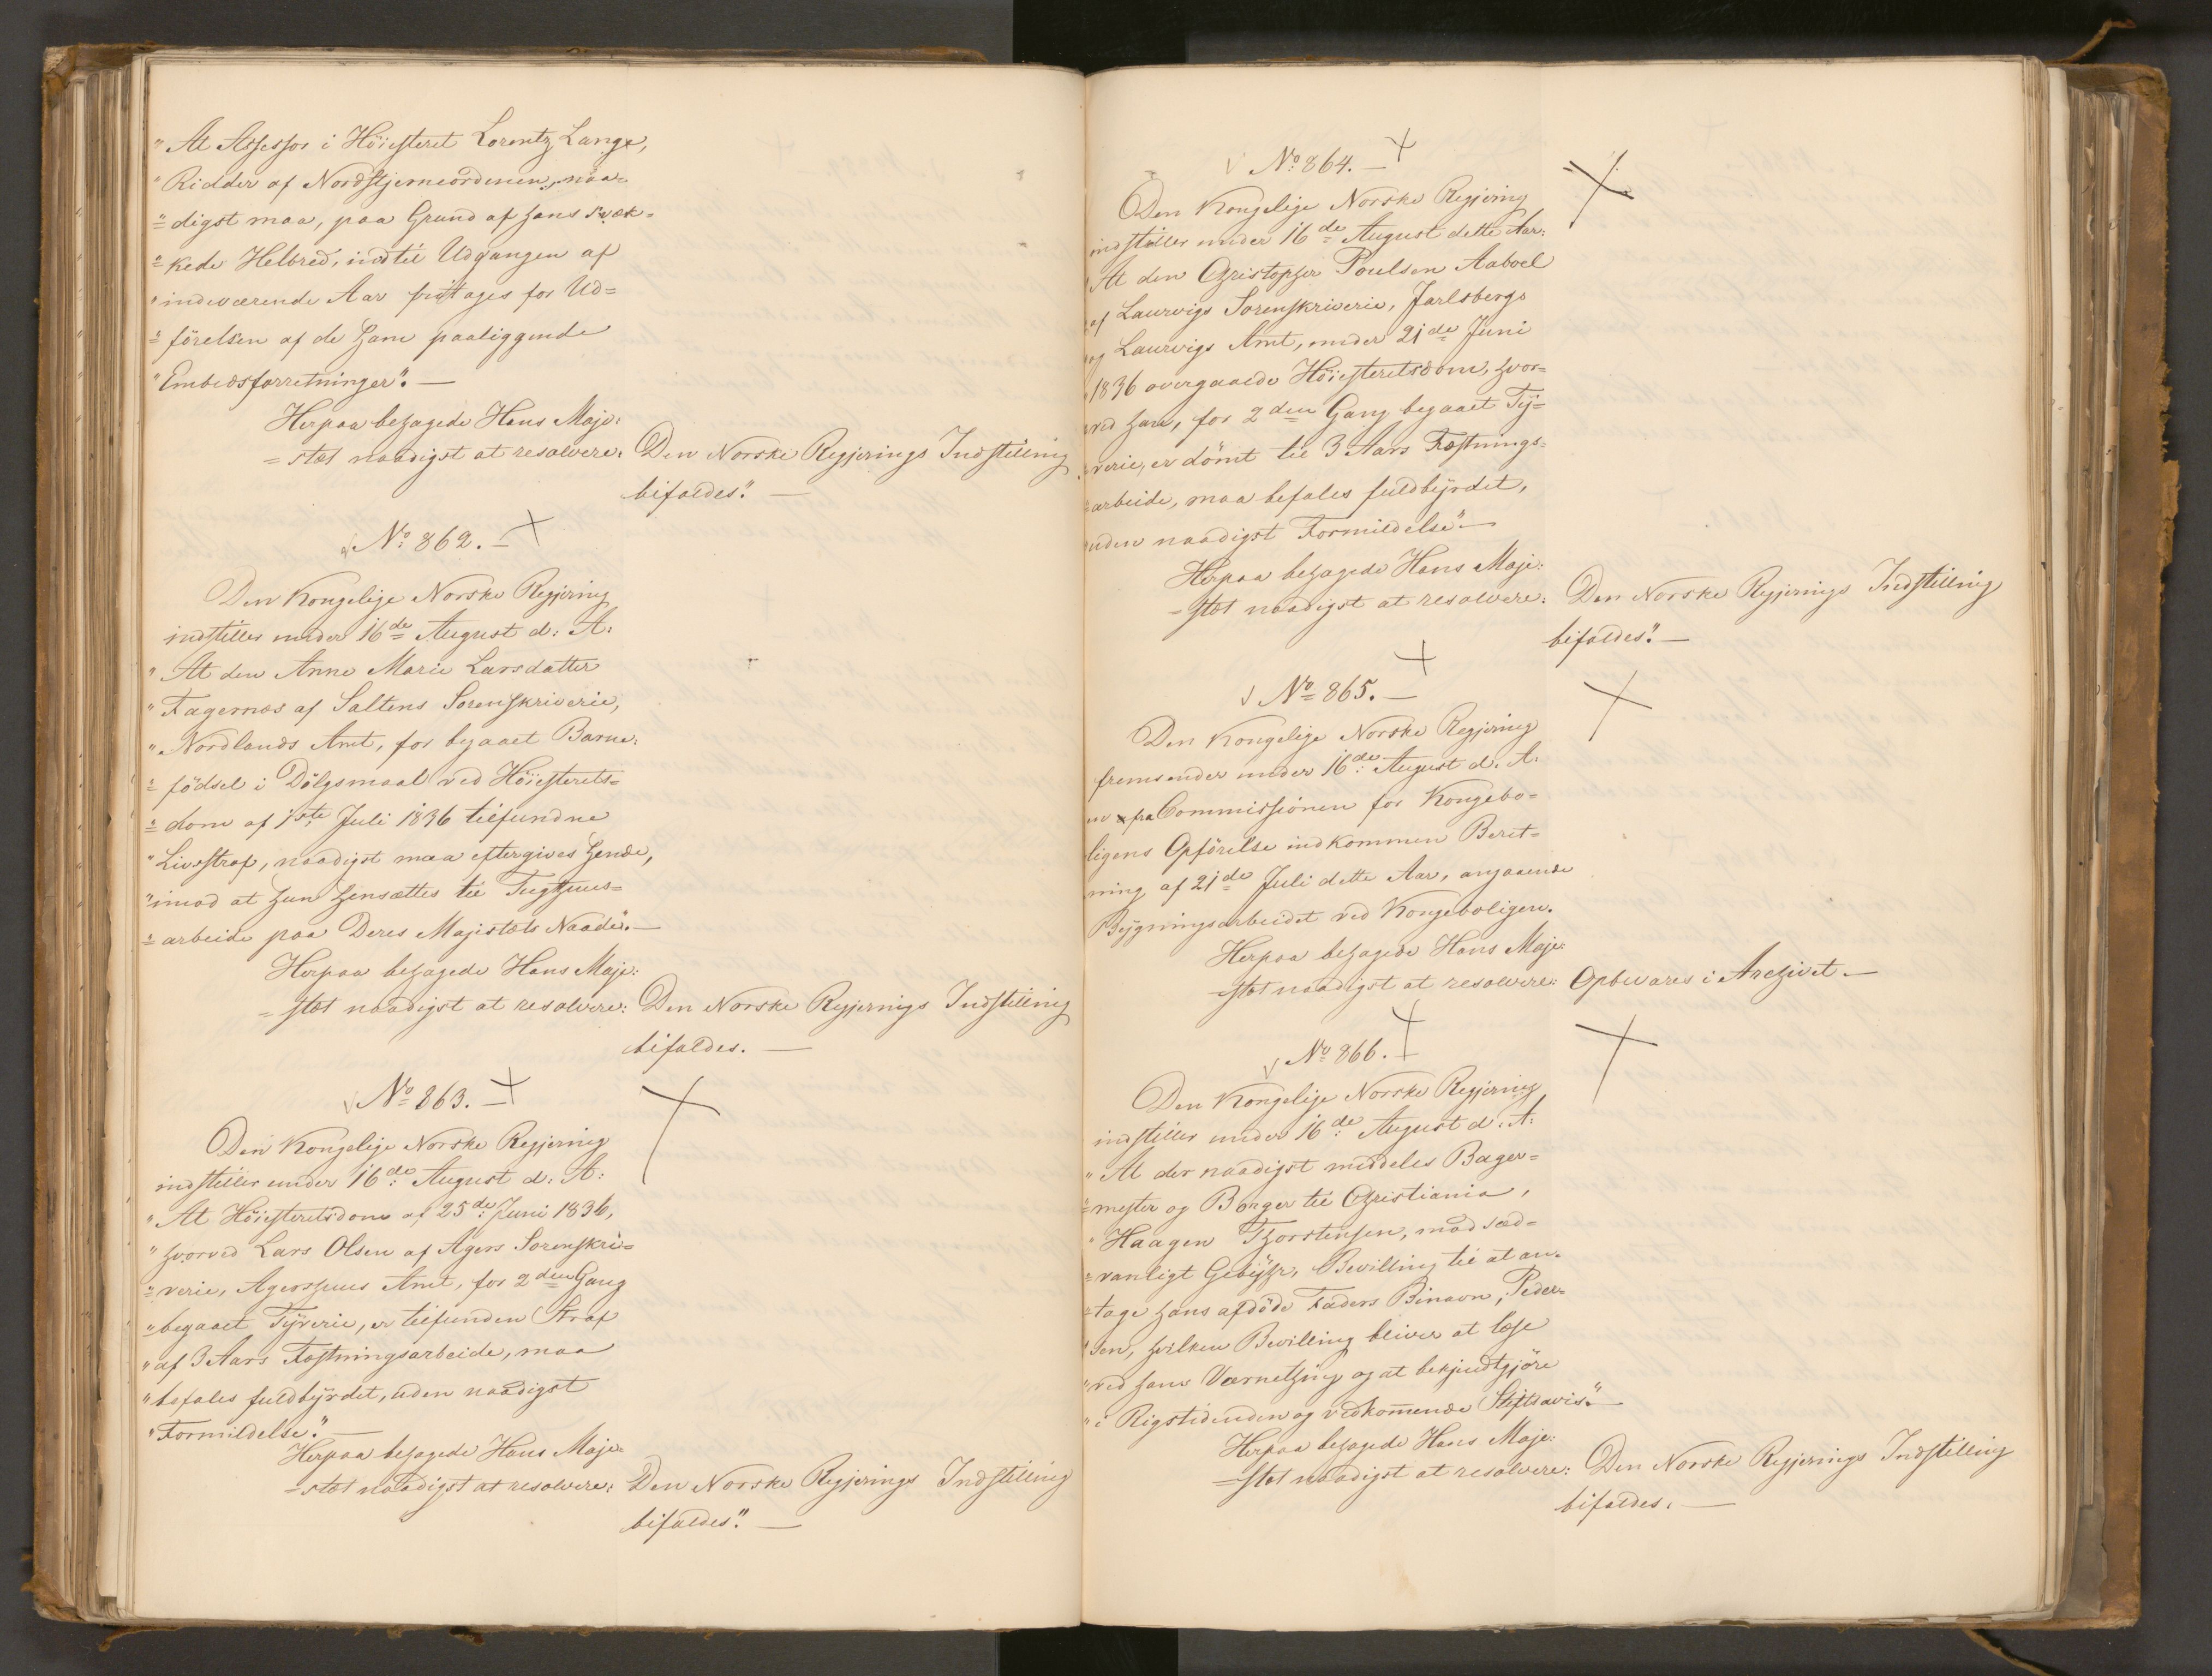 "At Assessor i Höiesteret Lorentz Lange,
"Ridder af Nordstjerneordenen, naa-
"digst maa, paa Grund af hans svæk-
"kede Helbred, indtil Udgangen af
"indeværende Aar fritages for Ud-
"förelsen af de ham paaliggende
"Embedsforretninger". —
Herpaa behagede Hans Maje-
-stæt naadigst at resolvere: Den Norske Regjerings Indstilling
bifaldes". —
No 862. —
Den Kongelige Norske Regjering
indstiller under 16de August d: A:
"At den Anne Marie Larsdatter
"Fagernæs af Saltens Sorenskriverie,
"Nordlands Amt, for begaaet Barne-
"födsel i Dölgsmaal ved Höiesterets-
"dom af 1ste Juli 1836 tilfundne
"Livsstraf, naadigst maa eftergives hende,
"imod at hun hensættes til Tugthuus-
"arbeide paa Deres Majestæts Naade". —
Herpaa behagede Hans Maje-
-stæt naadigst at resolvere: Den Norske Regjerings Indstilling
bifaldes. —
No 863. —
Den Kongelige Norske Regjering
indstiller under 16de August d: A:
"At Höiesteretsdom af 25de Juni 1836,
"hvorved Lars Olsen af Agers Sorenskri-
"verie, Agershuus Amt, for 2den Gang
"begaaet Tyverie, er tilfunden Straf
"af 3 Aars Fæstningsarbeide, maa
"befales fuldbyrdet, uden naadigst
"Formildelse". —
Herpaa behagede Hans Maje-
-stæt naadigst at resolvere: Den Norske Regjerings Indstilling
bifaldes". —
No 864. —
Den Kongelige Norske Regjering
indstiller under 16de August dette Aar:
"At den Christopher Poulsen Aaboel
"af Laurvigs Sorenskriverie, Jarlsbergs
"og Laurvigs Amt, under 21de Juni
"1836 overgaaede Höiesteretsdom, hvor-
"ved han, for 2den Gang begaaet Ty-
"verie, er dömt til 3 Aars Fæstnings-
"arbeide, maa befales fuldbyrdet,
"uden naadigst Formildelse". —
Herpaa behagede Hans Maje-
-stæt naadigst at resolvere: Den Norske Regjerings Indstilling
bifaldes". —
No 865. —
Den Kongelige Norske Regjering
fremsender under 16de August d. A.
en fra Commissionen for Kongebo-
ligens Opförelse indkommen Beret-
ning af 21de Juli dette Aar, angaaende
Bygningsarbeidet ved Kongeboligen.
Herpaa behagede Hans Maje-
-stæt naadigst at resolvere: Opbevares i Archivet —
No 866.
Den Kongelige Norske Regjering
indstiller under 16de August d. A:
"At der naadigst meddeles Bager-
"mester og Borger til Christiania,
"Haagen Thorstensen, mod sæd-
"vanligt Gebyhr, Bevilling til at an-
"tage hans afdöde Faders Binavn, Peder-
"sen, hvilken Bevilling bliver at læse
"ved hans Værnething og at bekjendtgjöre
"i Rigstidenden og vedkommende Stiftsavis". —
Herpaa behagede Hans Maje-
-stæt naadigst at resolvere: Den Norske Regjerings Indstilling
bifaldes. —